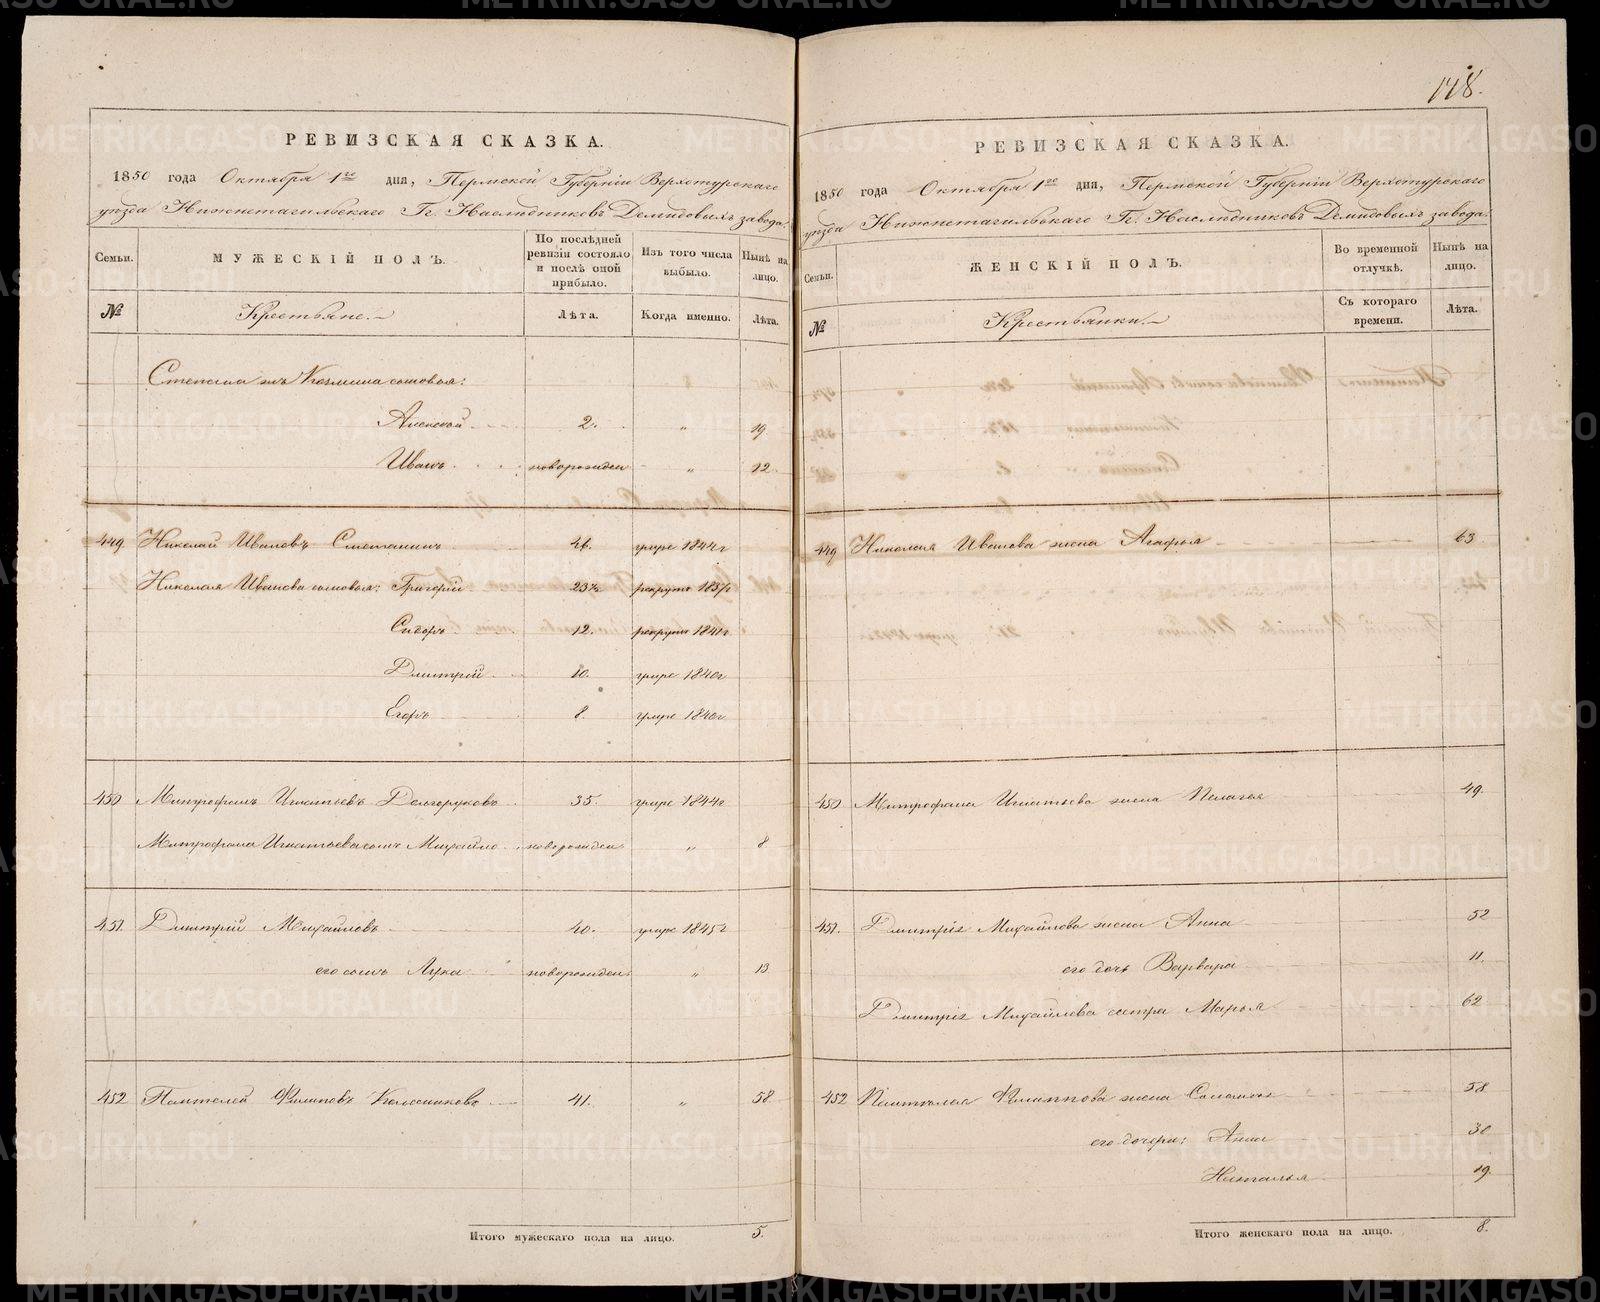 РЕВИЗСКАЯ СКАЗКА.
1850 года Октября 1го дня, Пермской Губерніи Верхотурскаго
уѣзда Нижнетагильскаго Гг. Наслѣдниковъ Демидовыхъ завода.
Семьи. МУЖЕСКІЙ ПОЛЪ. По послѣдней ревизіи состояло и послѣ оной прибыло. Изъ того числа выбыло. Нынѣ на лицо.
№ Крестьяне. Лѣта. Когда именно. Лѣта.
Степана Козмина сыновья:
Алексѣй 2. " 19
Иванъ новорожден " 12
449 Николай Ивановъ Сметанинъ 46. умре 1844г
Николая Иванова сыновья: Григорій 23½ рекрутъ 1837г
Сидоръ 12. рекрутъ 1841г
Дмитрій 10. умре 1840г
Егоръ 8. умре 1840г
450 Митрофанъ Игнатьевъ Долгоруковъ 35. умре 1844г
Митрофана Игнатьева сынъ Михайло новорожден " 8
451. Дмитрій Михайловъ 40. умре 1845г
его сынъ Лука новорожден " 13
452 Пантелей Филиповъ Колесниковъ 41. " 58
Итого мужескаго пола на лицо. 5.
148.
РЕВИЗСКАЯ СКАЗКА.
1850 года Октября 1го дня, Пермской Губерніи Верхотурскаго
уѣзда Нижнетагильскаго Гг. Наслѣдниковъ Демидовыхъ завода.
Семьи. ЖЕНСКІЙ ПОЛЪ. Во временной отлучкѣ. Нынѣ на лицо.
№ Крестьянки. Съ котораго времени. Лѣта.
449 Николая Иванова жена Агафья 63
450 Митрофана Игнатьева жена Пелагья 49.
451. Дмитрія Михайлова жена Анна 52
его дочь Варвара 11.
Дмитрія Михайлова сестра Марья 62
452 Пантелея Филиппова жена 58
его дочери: Анна 30
Наталья 19.
Итого женскаго пола на лицо. 8.
METRIKI.GASO-URAL.RU